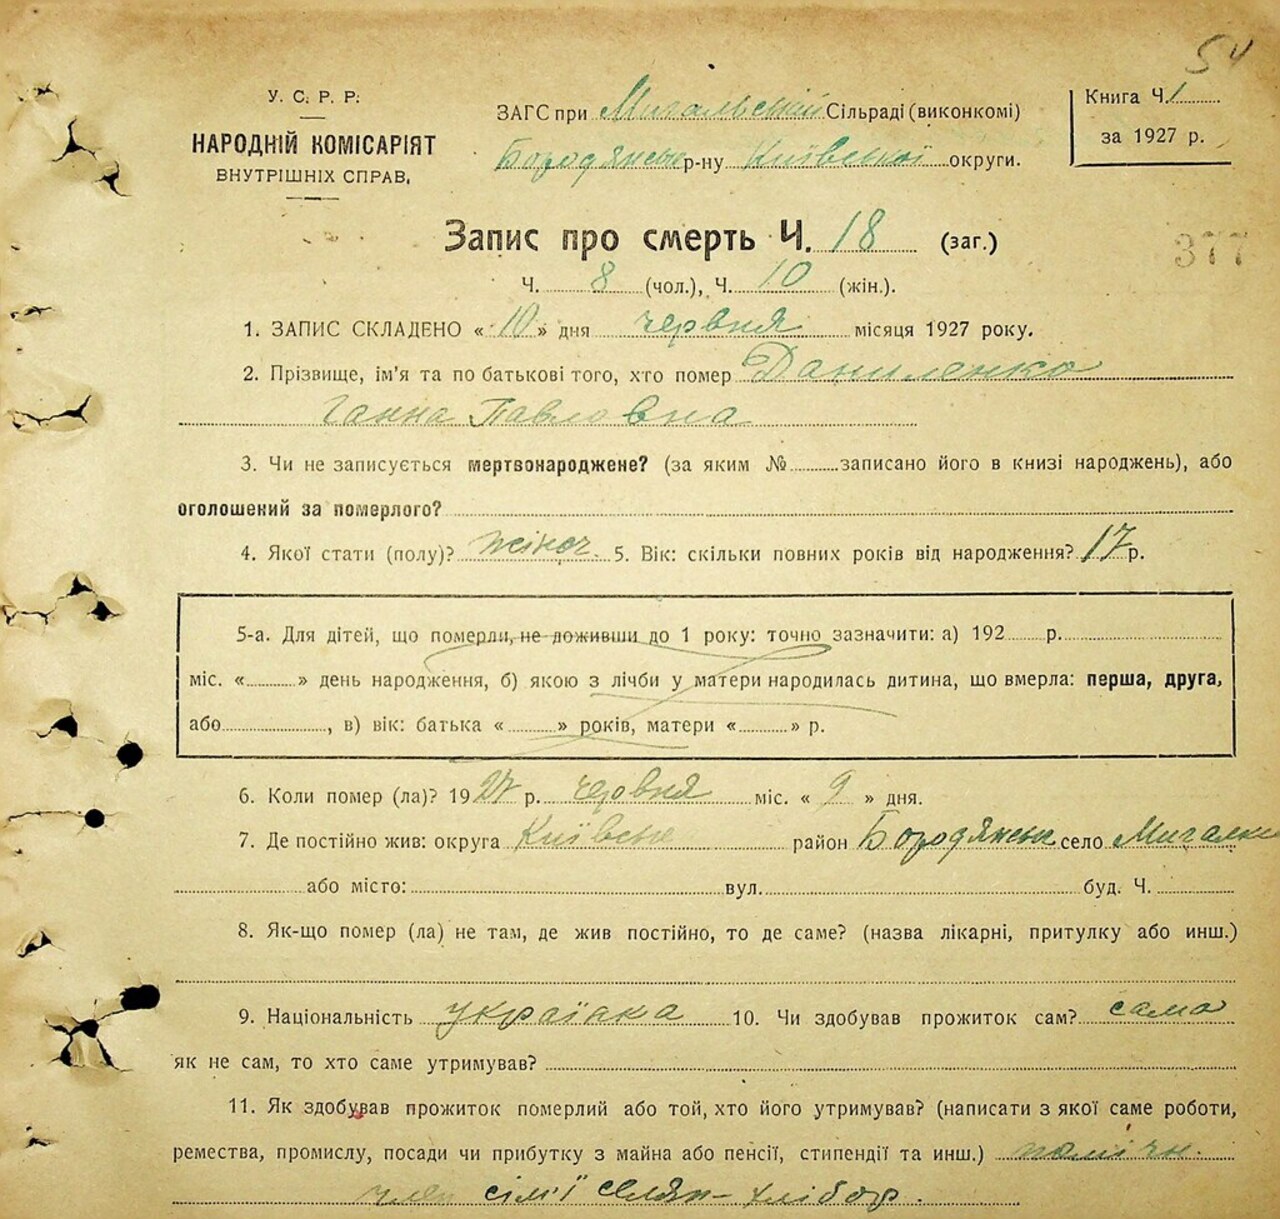 54
У. С. Р. Р.
НАРОДНІЙ КОМІСАРІЯТ
ВНУТРІШНІХ СПРАВ.
ЗАГС при Мигальській Сільраді (виконкомі)
Бородянськ р-ну Київської округи.
Книга Ч. 1
за 1927 р.
Запис про смерть Ч. 18 (заг.)
377
Ч. 8 (чол.), Ч. 10 (жін.).
1. ЗАПИС СКЛАДЕНО «10» дня червня місяця 1927 року.
2. Прізвище, ім'я та по батькові того, хто помер Даниленко
Ганна Павловна
3. Чи не записується мертвонароджене? (за яким № записано його в книзі народжень), або
оголошений за померлого?
4. Якої стати (полу)? жіноч. 5. Вік: скільки повних років від народження? 17 р.
5-а. Для дітей, що померли, не доживши до 1 року: точно зазначити: а) 192 р.
міс. « » день народження, б) якою з лічби у матери народилась дитина, що вмерла: перша, друга,
або , в) вік: батька « » років, матери « » р.
6. Коли помер (ла)? 1927 р. червня міс. « 9 » дня.
7. Де постійно жив: округа Київськ район Бородянськ село Мигалки
або місто: вул. буд. Ч.
8. Як-що помер (ла) не там, де жив постійно, то де саме? (назва лікарні, притулку або инш.)
9. Національність українка 10. Чи здобував прожиток сам? сама
як не сам, то хто саме утримував?
11. Як здобував прожиток померлий або той, хто його утримував? (написати з якої саме роботи,
ремества, промислу, посади чи прибутку з майна або пенсії, стипендії та инш.) помічн.
член сім'ї селян-хлібор.